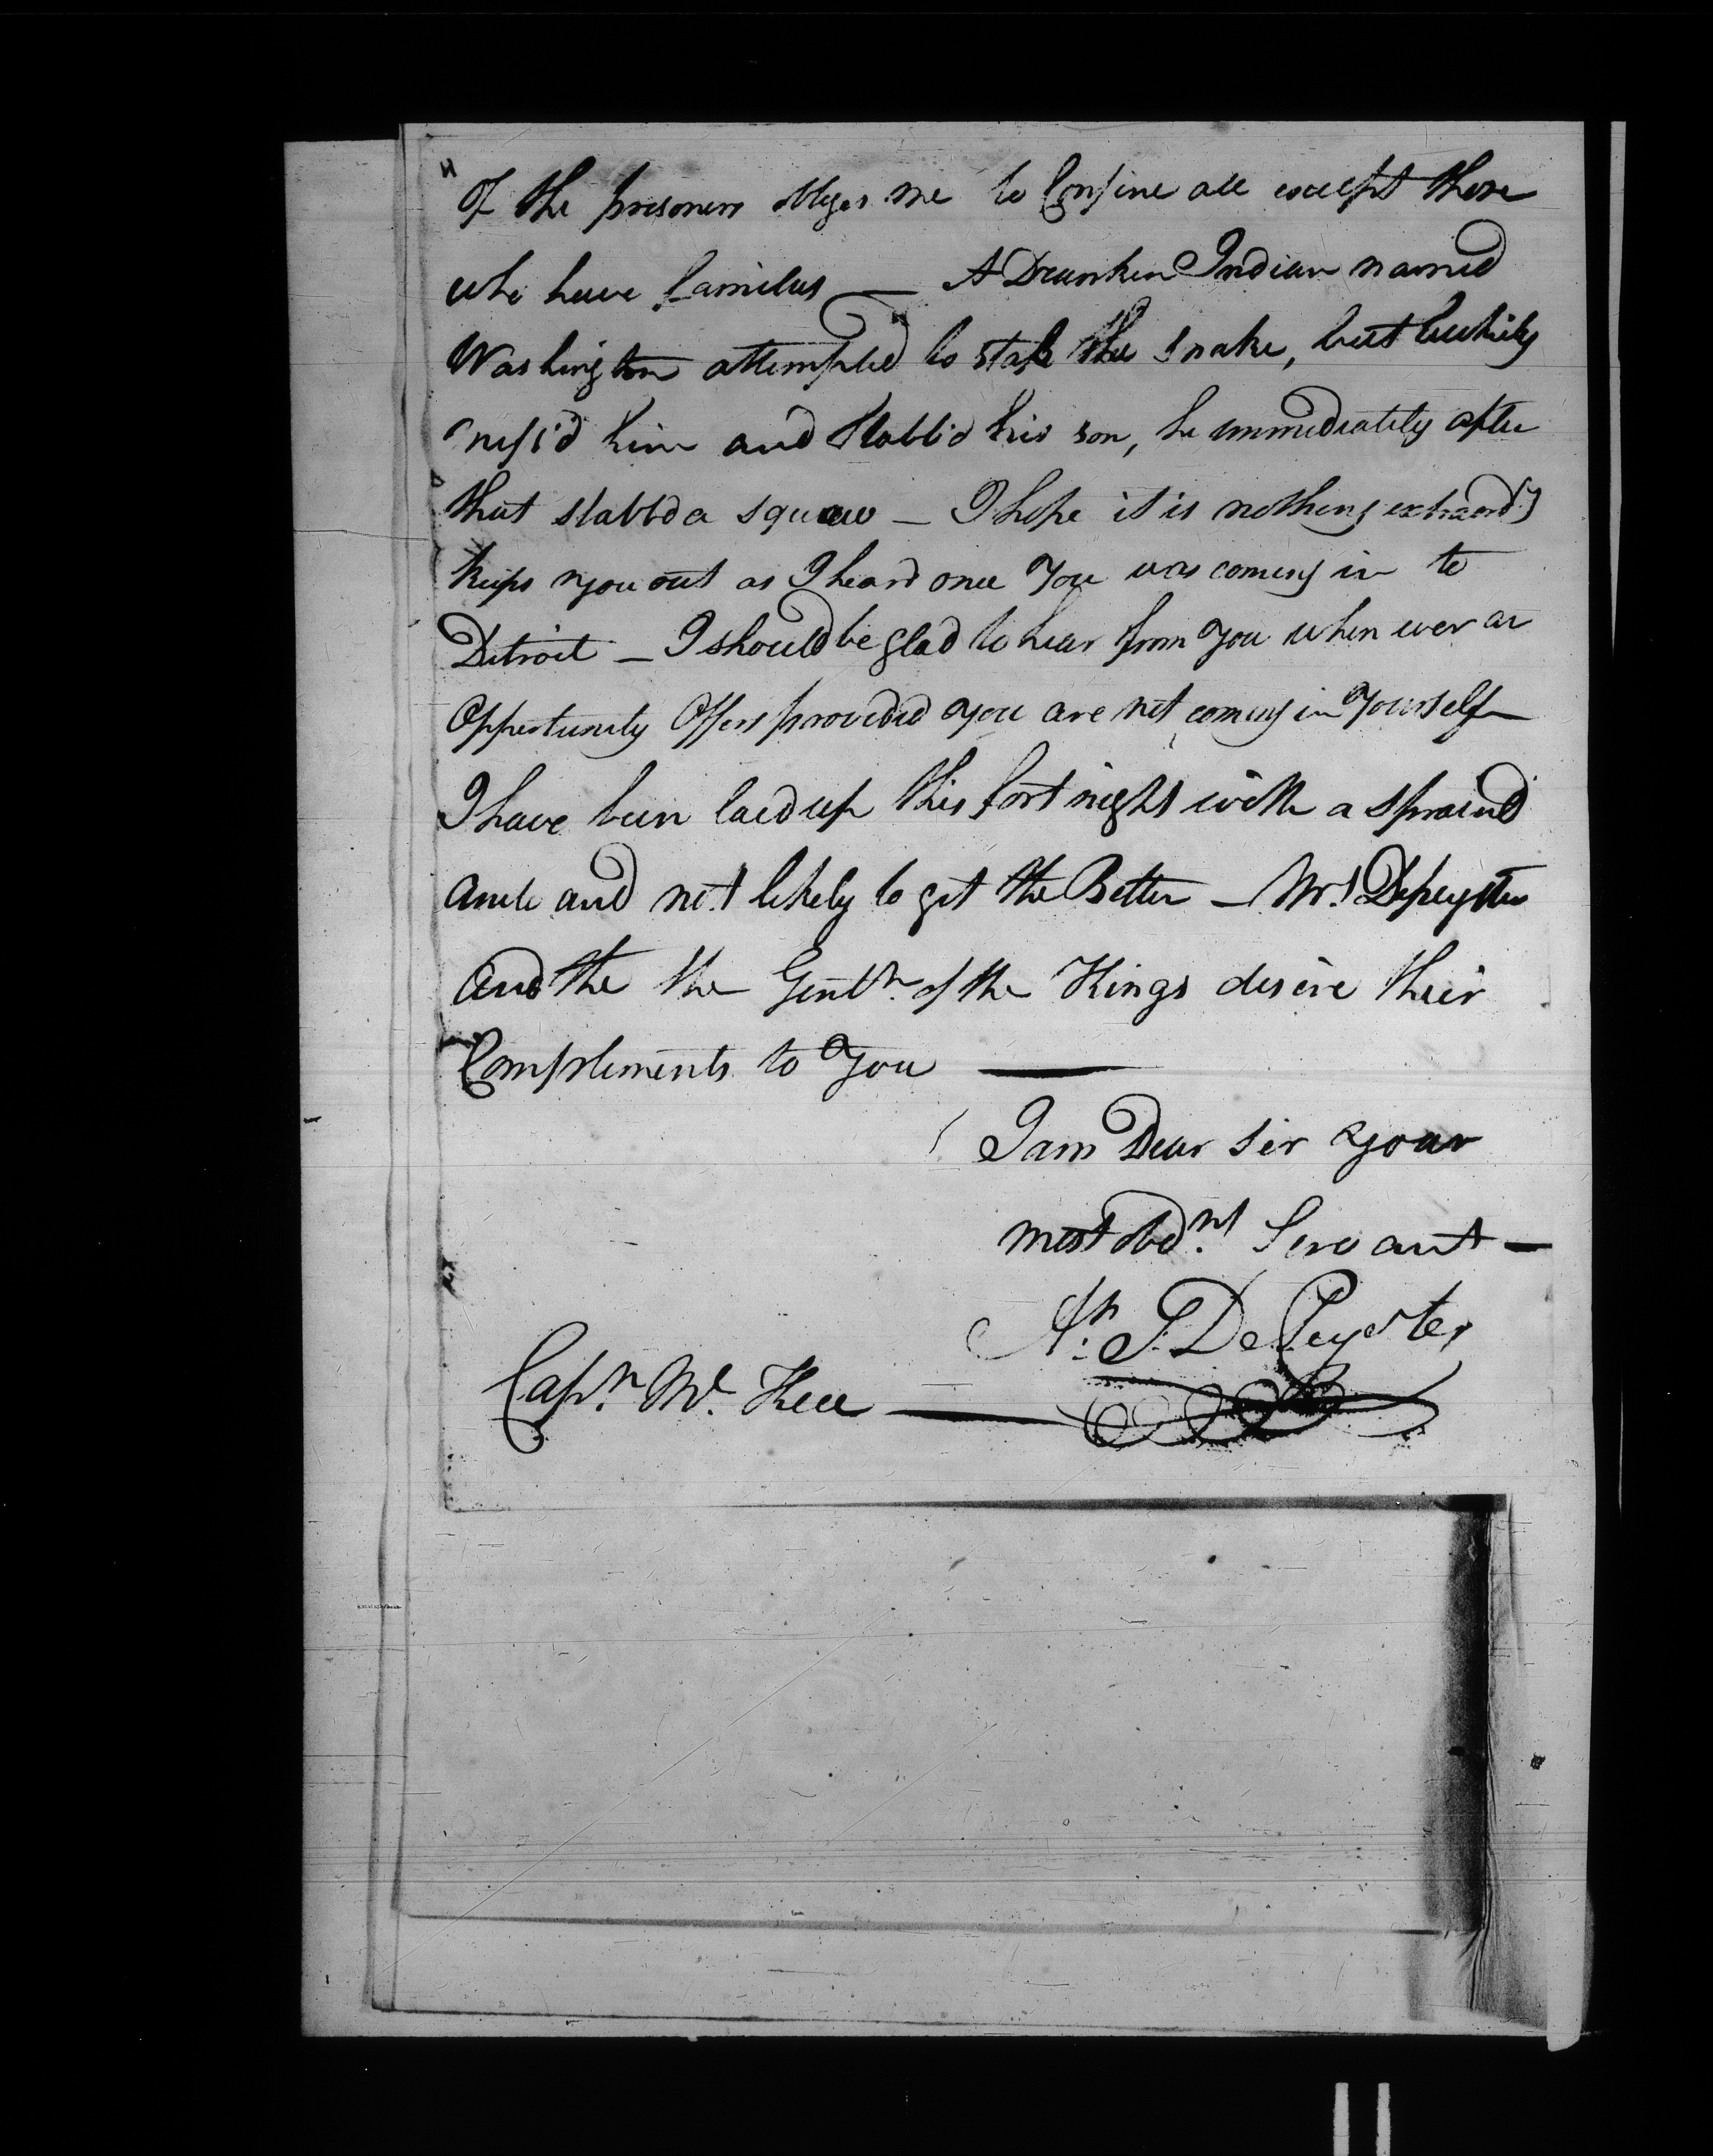 of the prisoners obliges me to Confine all except those
who have families — A Drunken Indian named
Washington attempted to stab the Snake, but luckily
miss'd him and stabb'd his son, he immediately after
that stabb'd a squaw — I hope it is nothing extraordy
keeps you out as I heard once you was coming in to
Detroit — I should be glad to hear from you when ever an
Oppertunity Offers provided you are not coming in Yourself
I have been laid up this fortnight with a spraind
ancle and not likely to get the Better — Mrs Depeyster
and the the Gentn. of the Kings desire their
Complements to You —
I am Dear Sir your
most obdnt Servant —
At. S. De Peyster
Capn. Mc. Kee —